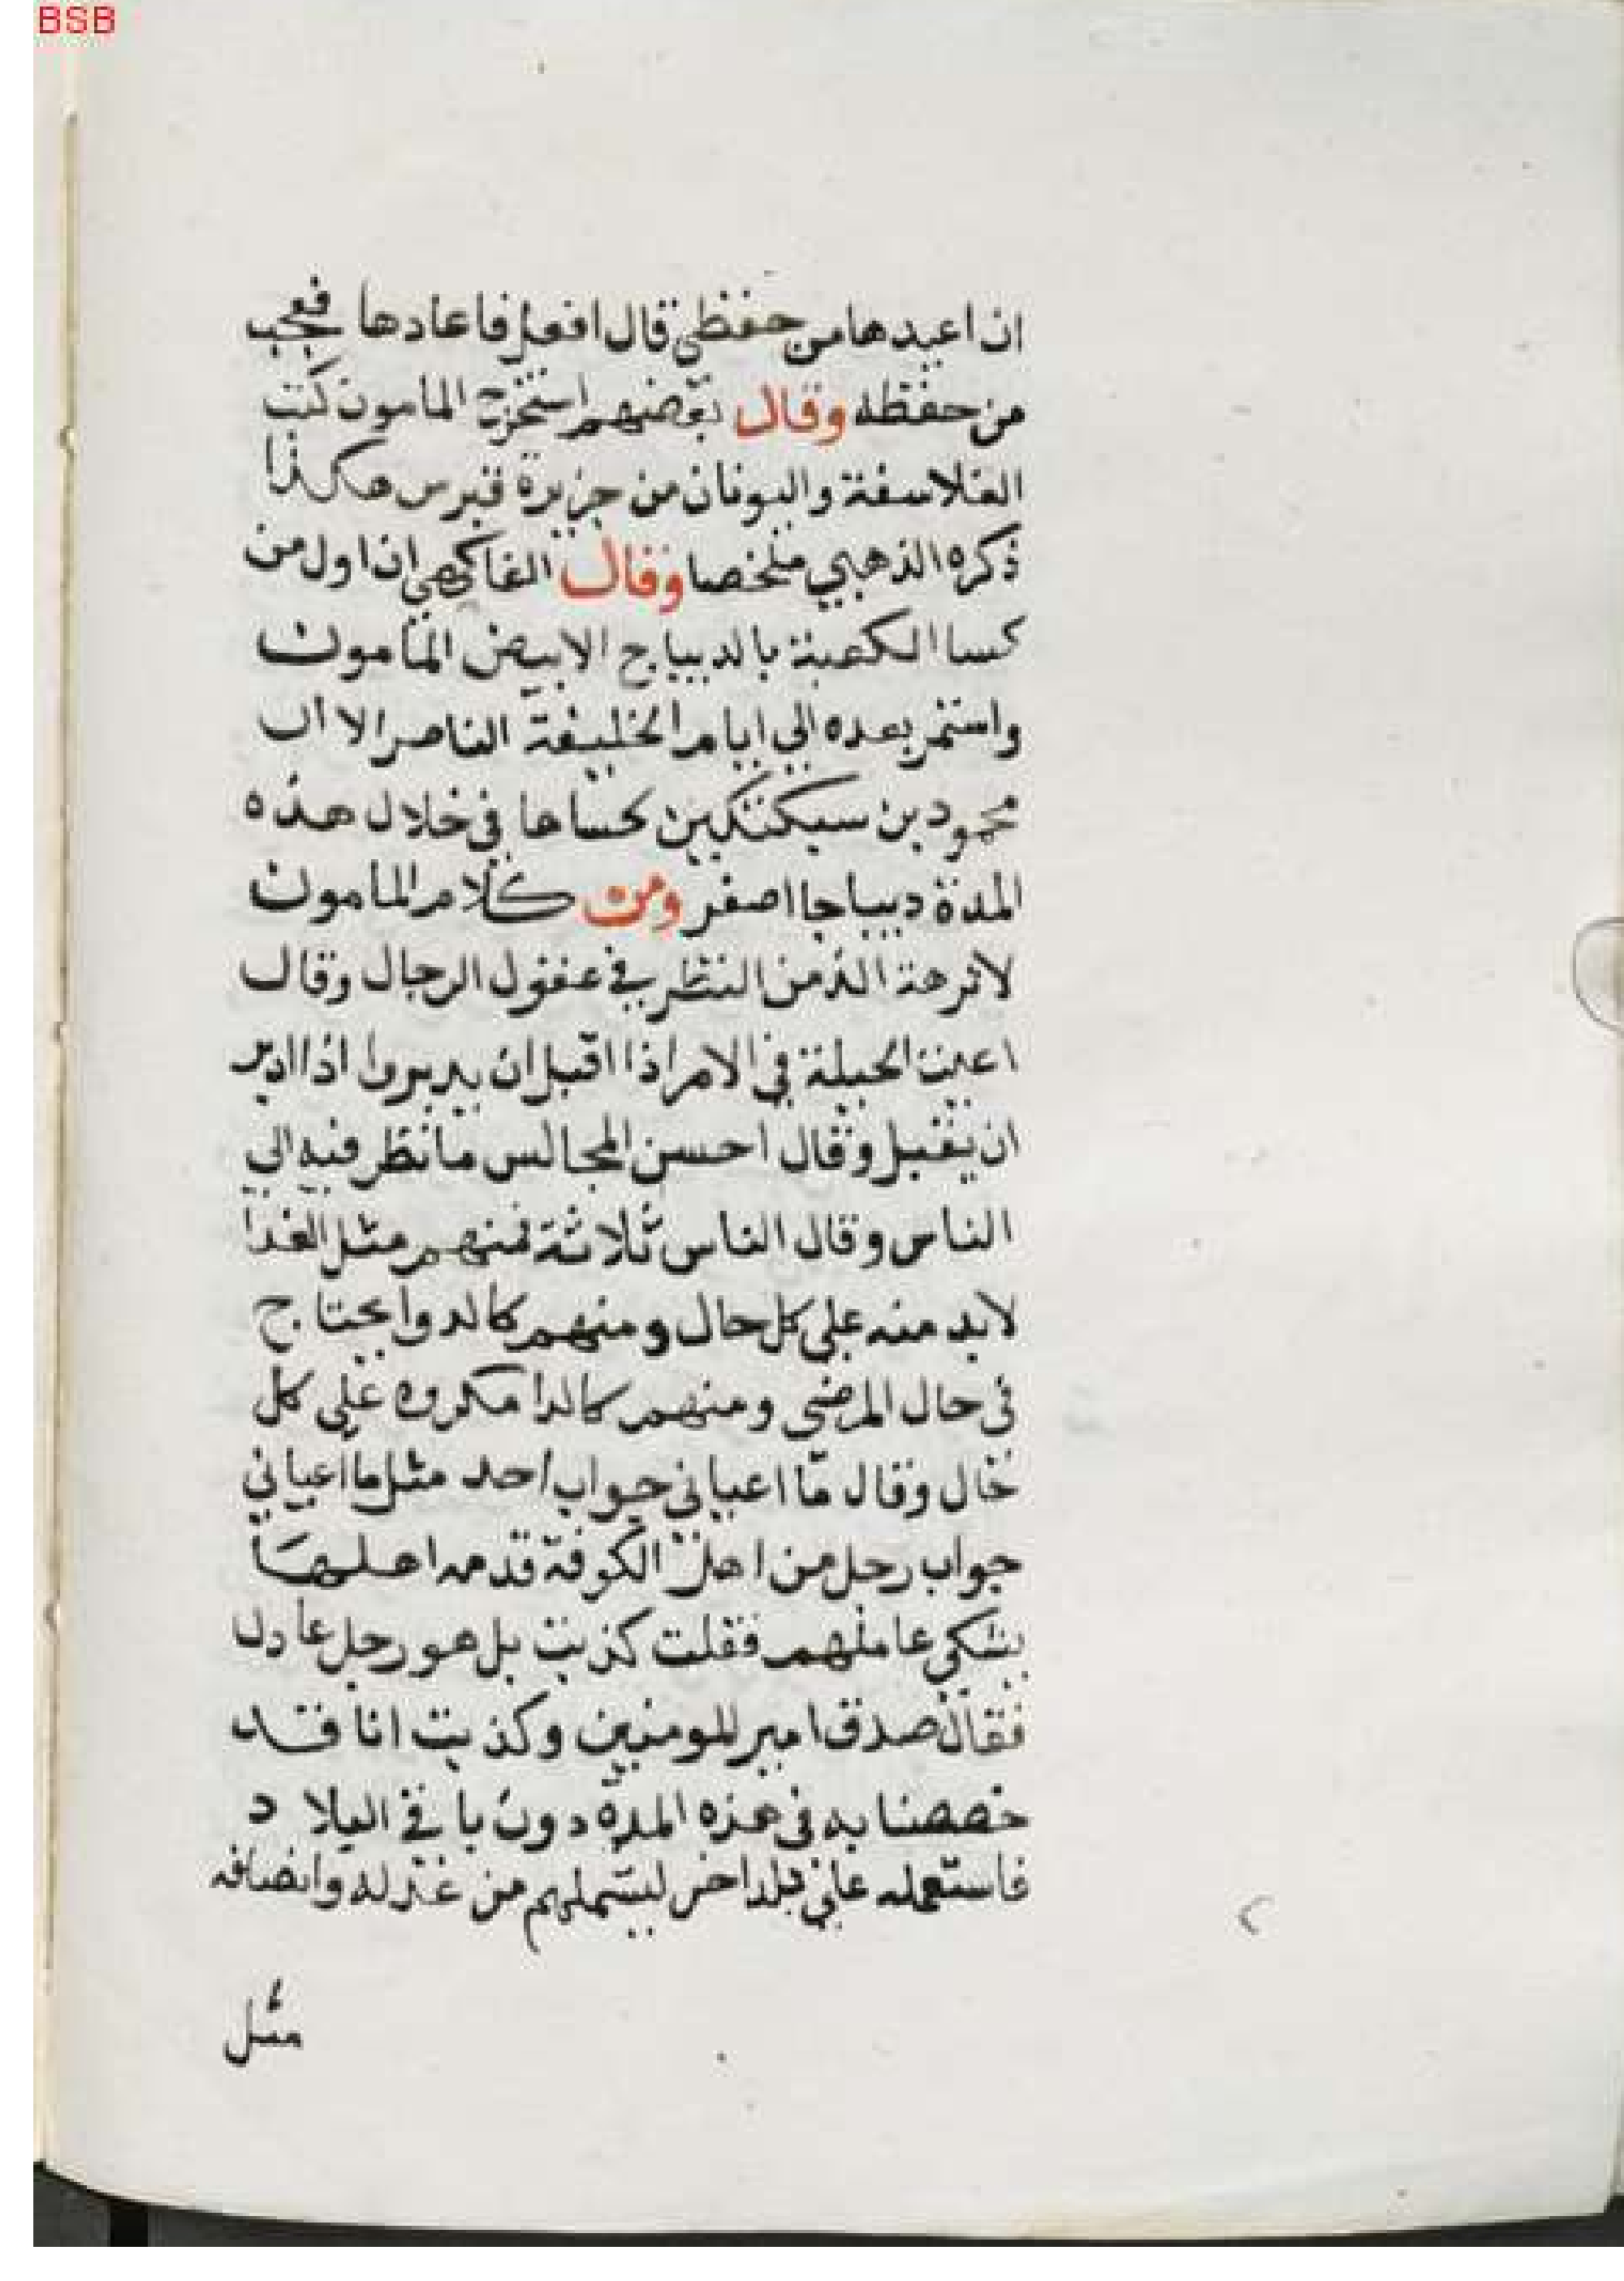 BSB
ان اعيدها من حفظي قال افعل فاعادها فعجب
من حفظه وقال بعضهم استخرج المامون كتب
الفلاسفة واليونان من جزيرة قبرس هكذا
ذكره الذهبي ملخصا وقال الفاكهي ان اول من
كسا الكعبة بالديباج الابيض المامون
واستمر بعده الي ايام الخليفة الناصر الا ان
محمود بن سبكتكين كساها في خلال هذه
المدة ديباجا اصفر ومن كلام المامون
لا نزهة الذ من النظر في عقول الرجال وقال
اعيت الحيلة في الامر اذا اقبل ان يدبروا اذا ادبر
ان يقبل وقال احسن المجالس ما نظر فيه الي
الناس وقال الناس ثلاثة فمنهم مثل الغذا
لابد منه علي كل حال ومنهم كالدوا يحتاج
في حال المرضي ومنهم كالدا مكروه علي كل
حال وقال ما اعياني جواب احد مثل ما اعياني
جواب رجل من اهل الكوفة قدمه اهلها
يشكي عاملهم فقلت كذبت بل هو رجل عادل
فقال صدق امير المومنين وكذبت انا قد
خصصنا به في هذه المدة دون باقي البلاد
فاستعمله علي بلد اخر ليشملهم من عدله وانصافه
مثل